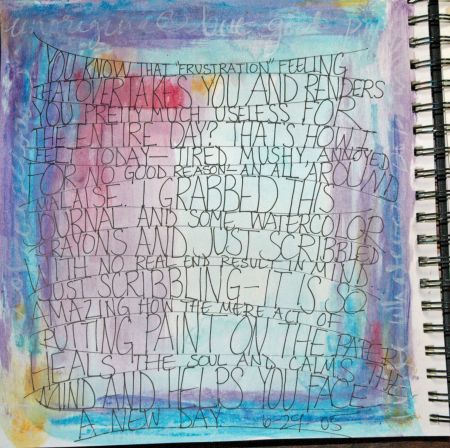 YOU KNOW THAT "FRUSTRATION" FEELING
THAT OVERTAKES YOU AND RENDERS
YOU PRETTY MUCH USELESS FOR
THE ENTIRE DAY? THAT'S HOW I
FELT TODAY— TIRED MUSHY, ANNOYED
FOR NO GOOD REASON—AN ALL AROUND
MALAISE. I GRABBED THIS
JOURNAL AND SOME WATERCOLOR
CRAYONS AND JUST SCRIBBLED
WITH NO REAL END RESULT IN MIND
JUST SCRIBBLING—IT IS SO
AMAZING HOW THE MERE ACT OF
PUTTING PAINT ON THE PAPER
HEALS THE SOUL AND CALMS THE
MIND AND HELPS YOU FACE
A NEW DAY 6-24-05